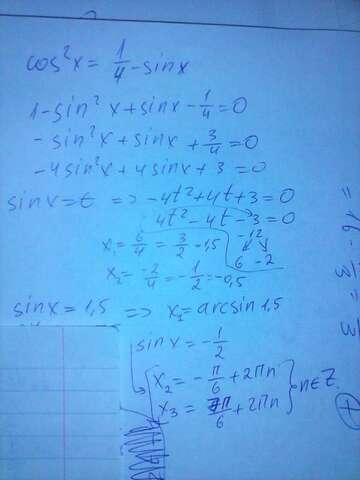 cos²x = 1/4 - sinx
1 - sin²x + sinx - 1/4 = 0
- sin²x + sinx + 3/4 = 0
-4sin²x + 4sinx + 3 = 0
sinx = t => -4t² + 4t + 3 = 0
4t² - 4t - 3 = 0
-12
6 -2
x₁ = 6/4 = 3/2 = 1,5
x₂ = -2/4 = -1/2 = -0,5
sinx = 1,5 => x₁ = arcsin 1,5
sinx = -1/2
x₂ = -π/6 + 2πn
x₃ = 7π/6 + 2πn } n∈Z.
+